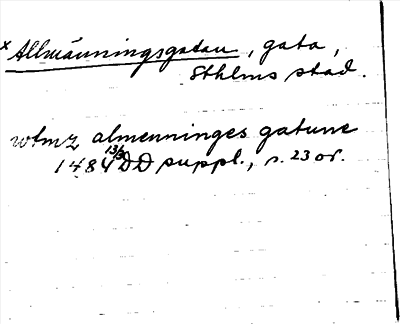 x Allmänningsgatan, gata,
Sthlms stad.
wtmz almenninges gatune
1484 13/3 DD suppl., s. 23 or.